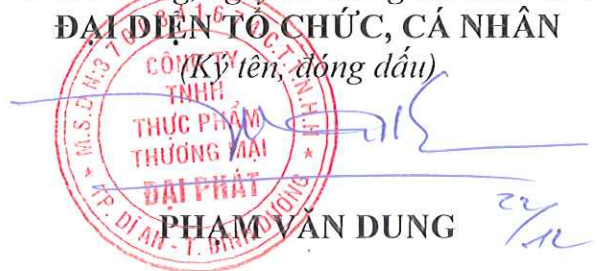 ĐẠI DIỆN TỔ CHỨC, CÁ NHÂN
(Ký tên, đóng dấu)
CÔNG TY
TNHH
THỰC PHẨM
THƯƠNG MẠI
ĐẠI PHÁT
TP. DĨ AN - T. BÌNH DƯƠNG
PHẠM VĂN DUNG
22/12